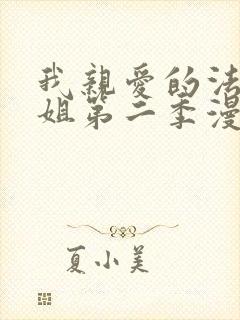 我親愛的法
姐第二季漫
夏小美